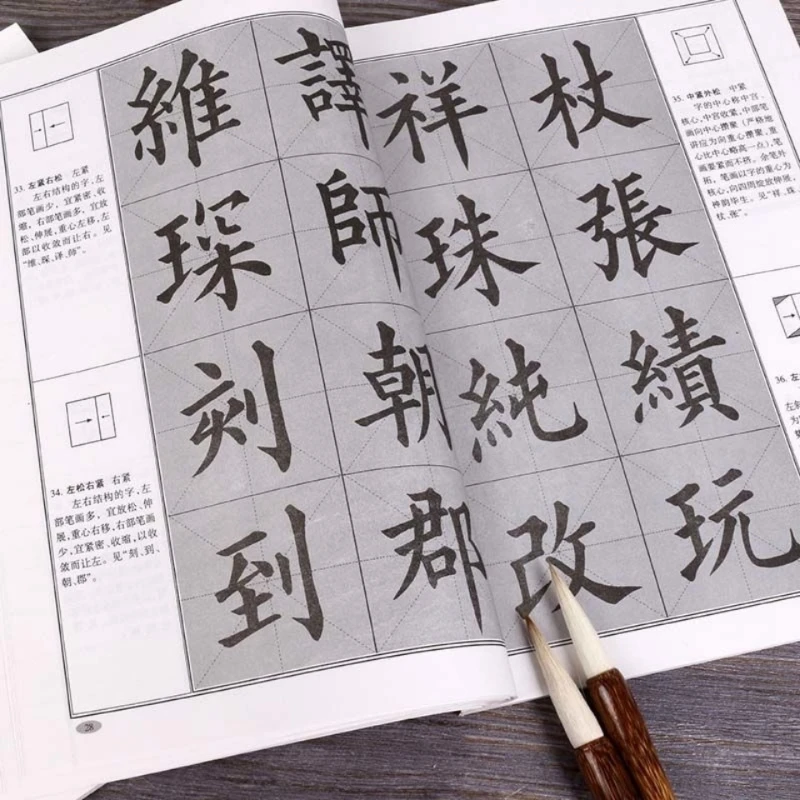 33. 左紧右松　左紧
左右结构的字,左
部笔画少，宜紧密、收
缩，右部笔画多，宜放
松、伸展,重心左移,左
部以收敛而让右。见
“维、琛、译、师”。
34. 左松右紧　右紧
左右结构的字,左
部笔画多，宜放松、伸
展,重心右移,右部笔画
少,宜紧密、收缩,以收
敛而让左。见“刻、到、
朝、郡”。
維 譯
琛 師
刻 朝
到 郡
28
祥 杖
珠 張
純 績
改 玩
35. 中紧外松　中紧
字的中心称中宫、
核心,中宫收紧,中部笔
画向中心攒聚（严格地
讲应为向重心攒聚，重
心比中心略高一点）,笔
画要紧而不挤。余笔外
拓，笔画以字的重心为
核心,向四周绽放伸展,
神韵毕生。见“祥、珠、
杖、张”。
36. 左